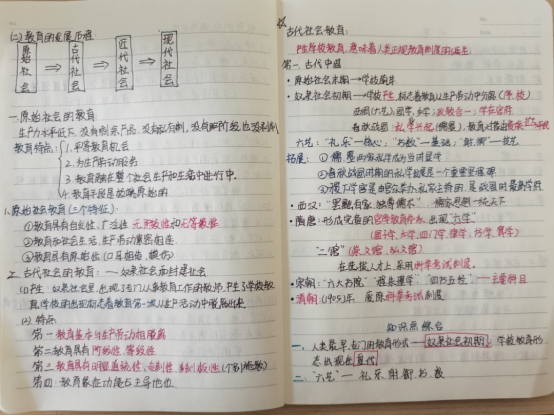 (二)教育的发展历程
原始社会 ⇒ 古代社会 ⇒ 近代社会 ⇒ 现代社会
一.原始社会的教育
生产力水平低下,没有剩余产品,没有私有制,没有阶级也没
教育特点:1.平等教育机会
2.为生产劳动服务
3.教育融在整个社会生产和生活中进行
4.教育手段是极端原始的
1.原始社会教育(三个特征):
①教育具有自发性、广泛性、无等级性和无等级
②教育和社会生活、生产劳动紧密相连
③教育具有原始性(口耳相传、模仿)
2.古代社会的教育:——奴隶社会和封建社会
(1)产生:奴隶社会里,出现了专门从事教育工作的教师,产生了学校教育
教育,学校的出现标志着教育第一次从生产活动中脱离出来
(2)特点
第一 教育基本与生产劳动相脱离
第二 教育具有阶级性、等级性
第三 教育具有
第四 教育象征功能占主导地位
古代社会教育:
产生学校教育,意味着人类正规教育制度的诞生
第一.古代中国
·原始社会末期→学校萌芽
·奴隶社会初期→学校产生,标志着教育从生产劳动中分离(序、校)
西周(六艺):国学、乡学;政教合一;学在官府
春秋战国:私学兴起(儒墨),
六艺:“礼乐”—核心;“书数”—基础;“射御”—技艺
拓展:①儒墨的两家私学成为当时显学
②春秋战国时期的私学发展是一个重要里程碑
③稷下学宫是由官家举办,私家主持的,是战国时最高学府
·西汉:“罢黜百家,独尊儒术”
·隋唐:形成完备的官学教育体系,出现“六学”
(国子学、太学、四门学、律学、书学、算学)
“二馆”(崇文馆、弘文馆)
在选拔人才上,采用科举考试制度。
·宋朝:“六大书院”“程朱理学”“四书五经”——主要科目
·清朝:(1905)年,废除科举考试制度
知识点综合
一、人类最早专门的教育形式—奴隶社会初期;学校教育形
态出现在夏代
二、“六艺”—礼乐射御书数